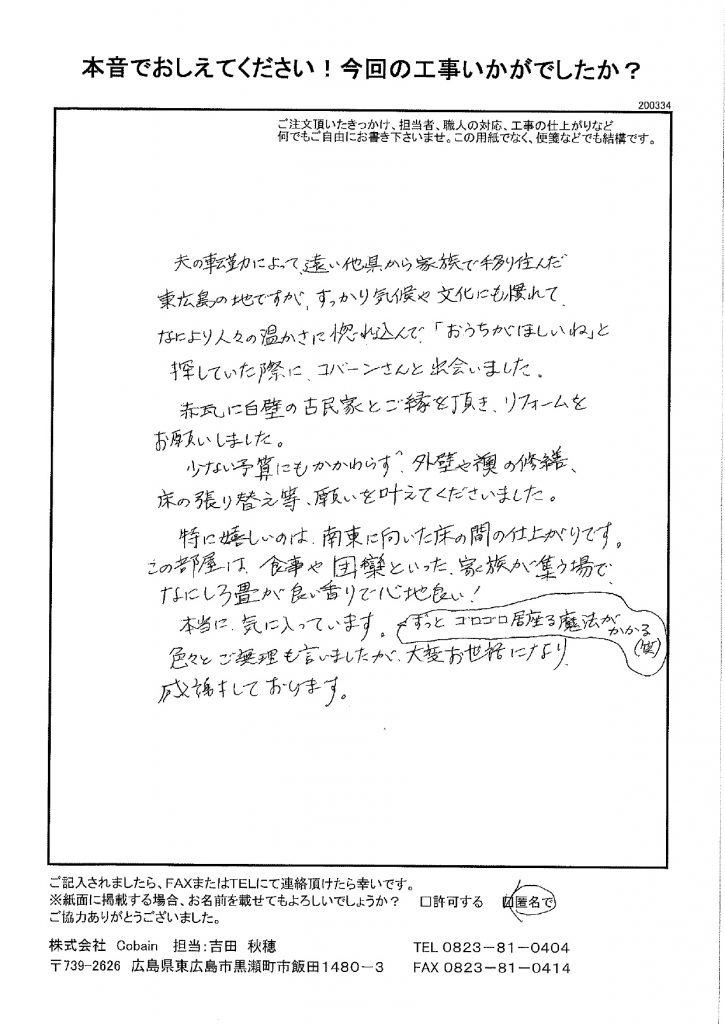 本音でおしえてください！今回の工事いかがでしたか？
200334
ご注文頂いたきっかけ、担当者、職人の対応、工事の仕上がりなど
何でもご自由にお書き下さいませ。この用紙でなく、便箋などでも結構です。
夫の転勤によって、遠い他県から家族で移り住んだ
東広島の地ですが、すっかり気候や文化にも慣れて、
なにより人々の温かさに惚れ込んで、「おうちがほしいね」と
探していた際に、コバーンさんと出会いました。
赤瓦に白壁の古民家とご縁を頂き、リフォームを
お願いしました。
少ない予算にもかかわらず、外壁や襖の修繕、
床の張り替え等、願いを叶えてくださいました。
特に嬉しいのは、南東に向いた床の間の仕上がりです。
この部屋は、食事や団欒といった、家族が集う場で、
なにしろ畳が良い香りで心地良い！
本当に、気に入っています。
ずっとゴロゴロ居座る魔法がかかる(笑)
色々とご無理も言いましたが、大変お世話になり
感謝しております。
ご記入されましたら、FAXまたはTELにて連絡頂けたら幸いです。
※紙面に掲載する場合、お名前を載せてもよろしいでしょうか？　□許可する　☑匿名で
ご協力ありがとうございました。
株式会社　Cobain　担当：吉田　秋穂　TEL 0823－81－0404
〒739-2626　広島県東広島市黒瀬町市飯田1480－3　FAX 0823－81－0414